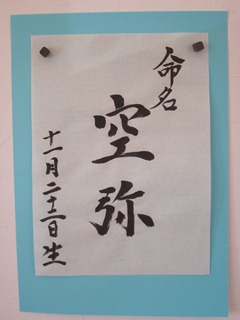 命名
空弥
十一月二十三日生